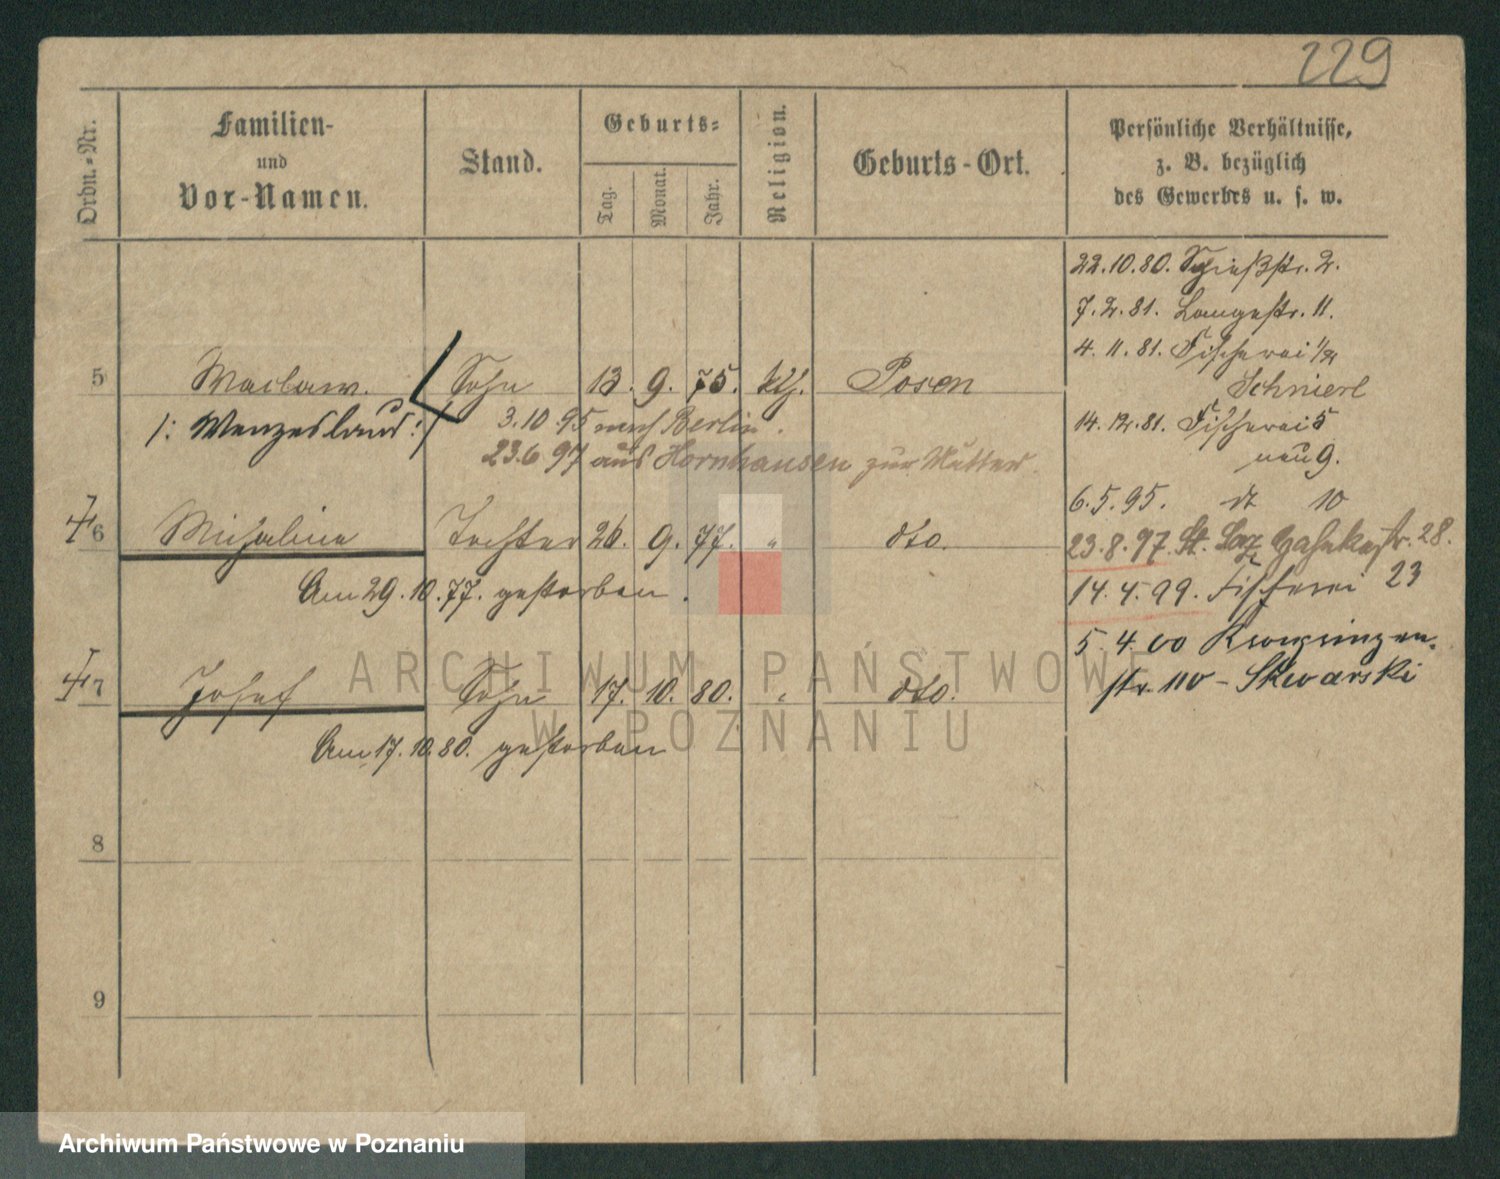 229
Ordn.-Nr.
Familien-
und
Vor-Namen.
Stand.
Geburts-
Tag.
Monat.
Jahr.
Religion.
Geburts-Ort.
Persönliche Verhältnisse,
z. B. bezüglich
des Gewerbes u. s. w.
22.10.80. Schießstr. 2.
7.2.81. Langestr. 11.
4.11.81. Fischerei
Schnierl
14.12.81. Fischerei 5
neu 9.
6.5.95. dt 10
23.8.97. St. Laz 28.
14.4.99. Fischerei 23
5.4.00 Kronprinzen-
str. 110 - Skwarski
5 Waclaw. Sohn 13. 9. 75. kth. Posen
/: Wenzeslaus :/ 3.10.95 nach Berlin.
23.6 97 aus Hornhausen zur Mutter
6 Michaline Tochter 26. 9. 77. " dto.
Am 29.10.77. gestorben.
7 Josef Sohn 17. 10. 80. " dto.
Am 17.10.80. gestorben
8
9
ARCHIWUM PAŃSTWOWE
W POZNANIU
Archiwum Państwowe w Poznaniu